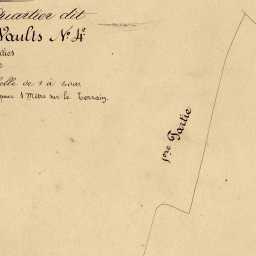 Quartier dit
Vaults N. 4e
elle de 1 à 2000
pour 1 Mètre sur le Terrain.
1re Partie